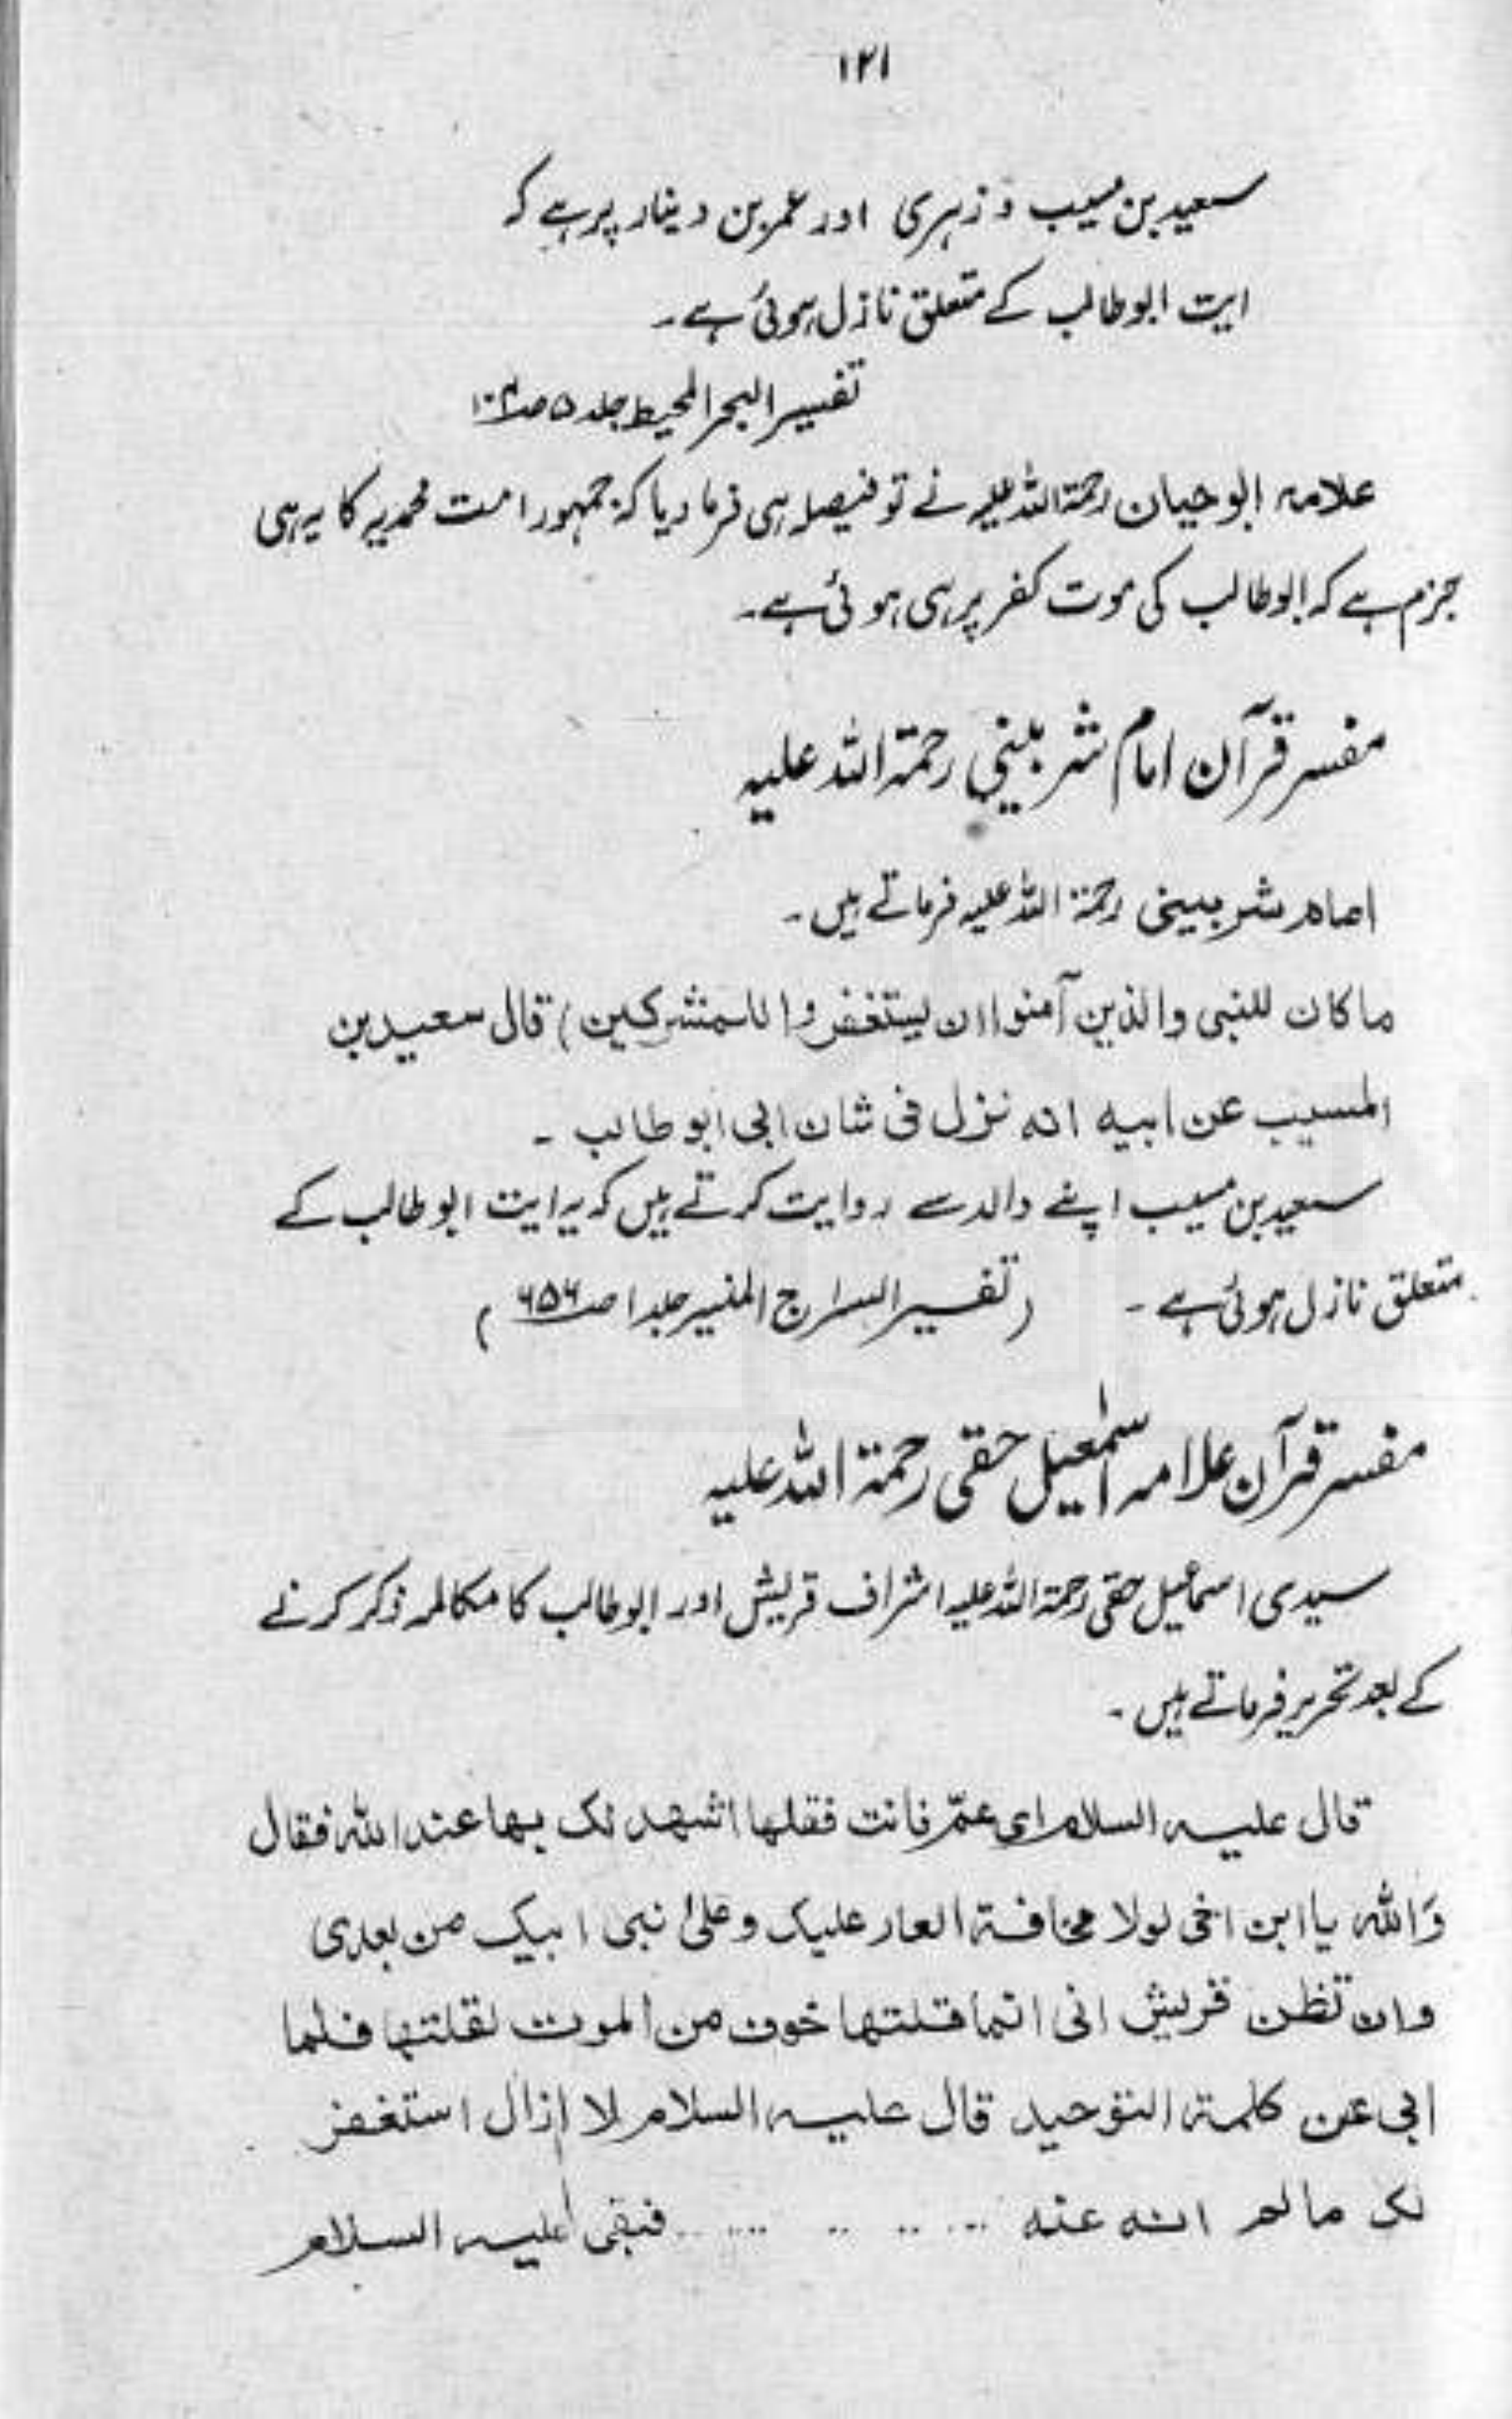 ۱۲۱
سعید بن مسیب و زہری اور عمر بن دینار پر ہے کہ
ایت ابوطالب کے متعلق نازل ہوئی ہے۔
تفسیر البحر المحیط جلد ۵ صـ
علامہ ابوحیان رحمۃ اللہ علیہ نے تو فیصلہ ہی فرما دیا کہ جمہور امت محمدیہ کا یہ ہی
جزم ہے کہ ابوطالب کی موت کفر پر ہی ہوئی ہے۔
مفسر قرآن امام شربینی رحمۃ اللہ علیہ
امام شربینی رحمۃ اللہ علیہ فرماتے ہیں۔
ما کان للنبی والذین آمنوا ان یستغفروا للمشرکین) قال سعید بن
المسیب عن ابیہ انہ نزل فی شان ابی ابو طالب ۔
سعید بن مسیب اپنے والد سے روایت کرتے ہیں کہ یہ ایت ابوطالب کے
متعلق نازل ہوئی ہے ۔ (تفسیر السراج المنیر جلد ا صـ ۶۵۶)
مفسر قرآن علامہ اسمٰعیل حقی رحمۃ اللہ علیہ
سیدی اسماعیل حقی رحمۃ اللہ علیہ اشراف قریش اور ابوطالب کا مکالمہ ذکر کرنے
کے بعد تحریر فرماتے ہیں ۔
قال علیہ السلام ای عمّ فانت فقلھا اشھد لک بھا عند اللہ فقال
وَاللہ یا ابن اخی لولا مخافۃ العار علیک وعلیٰ نبی ابیک من بعدی
وان تظن قریش انی انما قلتھا خوف من الموت لقلتھا فلما
ابی عن کلمۃ التوحید قال علیہ السلام لا ازال استغفر
لک مالم انہ عنہ ... .. .. ... ... فبقی علیہ السلام